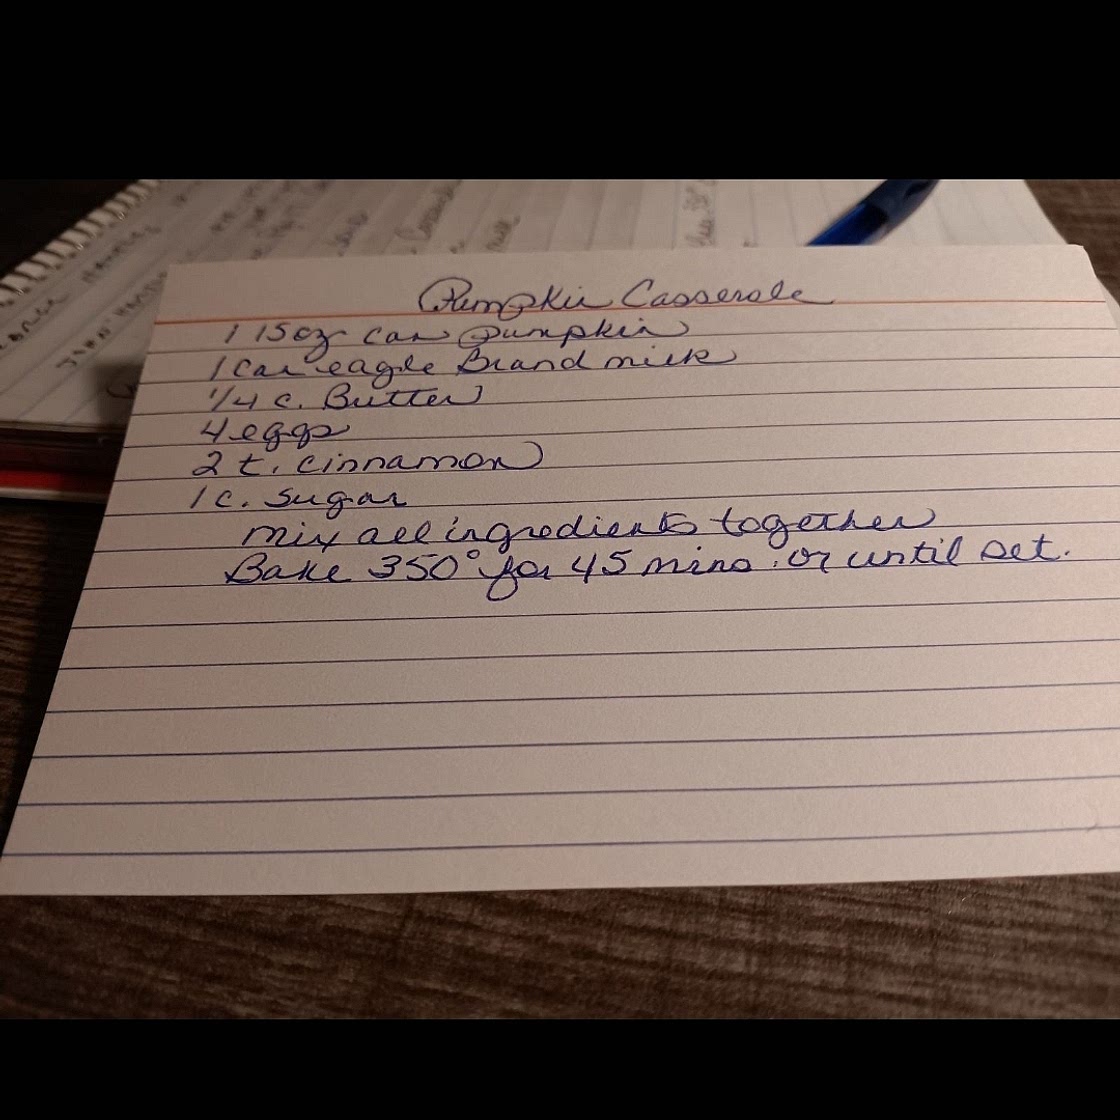 Pumpkin Casserole
1 15oz can Pumpkin
1 can eagle Brand milk
1/4 c. Butter
4 eggs
2 t. cinnamon
1 c. sugar
mix all ingredients together
Bake 350° for 45 mins. or until set.